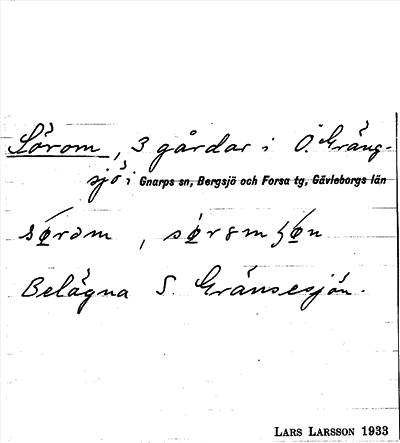 Sörom, 3 gårdar i Ö. Gräng-
sjö i Gnarps sn, Bergsjö och Forsa tg, Gävleborgs län
Belägna S. Gränsesjön.
LARS LARSSON 1933